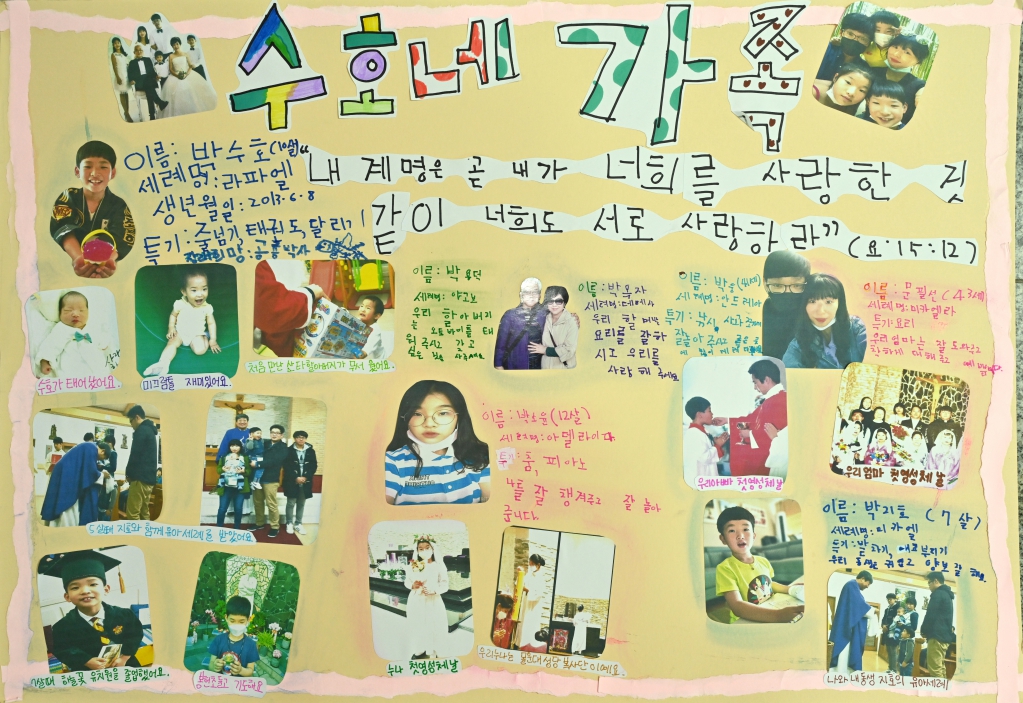 수호네 가족
이름: 박수호(10살)
세례명: 라파엘
생년월일: 2013.6.8
특기: 줄넘기, 태권도, 달리기
장래희망: 공룡박사
"내 계명은 곧 내가 너희를 사랑한 것
같이 너희도 서로 사랑하라"(요:15:12)
수호가 태어났어요.
미끄럼틀 재미있어요.
처음 만난 산타할아버지가 무서웠어요.
이름: 박용덕
세례명: 야고보
우리 할아버지
는 오토바이를 태
워 주시고
이름: 박옥자
세례명:
우리 할머니
요리를 잘하
시고 우리를
사랑해 주세요
이름: 박승
세례명: 안드레아
특기: 낚시,
잘 놀아 주시고
이름: 문필선(43세)
세례명: 미카엘라
특기: 요리
우리 엄마는 잘 도와주고
착하게 대해주고 예쁨.
이름: 박소윤(12살)
세례명: 아델라이다
특기: 춤, 피아노
나를 잘 챙겨주고 잘 놀아
줍니다.
우리아빠 첫영성체날
우리 엄마 첫영성체 날
5살때 지호와 함께 유아세례를 받았어요.
이름: 박지호 (7살)
세례명: 미카엘
특기: 발차기, 애교부리기
우리 동생은 귀엽고 양보 잘 해요.
7살때 하늘꽃 유치원을 졸업했어요.
기도해요
누나 첫영성체날
우리누나는 성당 복사단이예요.
나와 내동생 지호의 유아세례